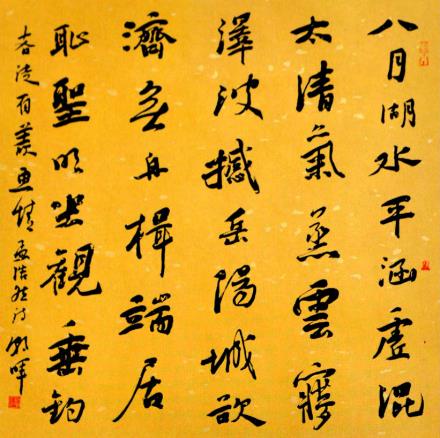 八月湖水平涵虛混
太清氣蒸雲夢
澤波撼岳陽城欲
濟無舟楫端居
恥聖明坐觀垂釣
者徒有羨魚情 孟浩然詩 暉